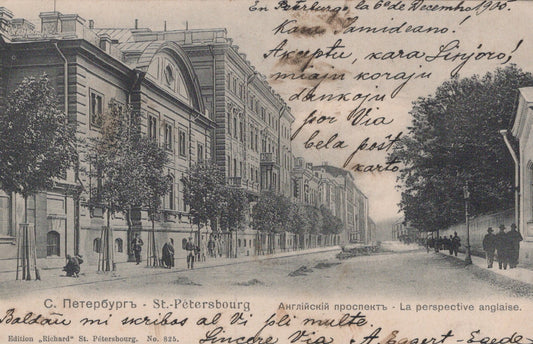 En Peterburgo, la 6a de Decembro, 1900.
Kara Samideano!
Akceptu, kara Sinjoro!
miajn korajn
dankojn
por Via
bela poŝt
karto.
С. Петербургъ - St.-Pétersbourg
Англійскій проспектъ. - La perspective anglaise.
Baldaŭ mi skribos al Vi pli multe.
Edition „Richard" St. Pétersbourg. No. 825.
Sincere Via A. Eggert-Egede-